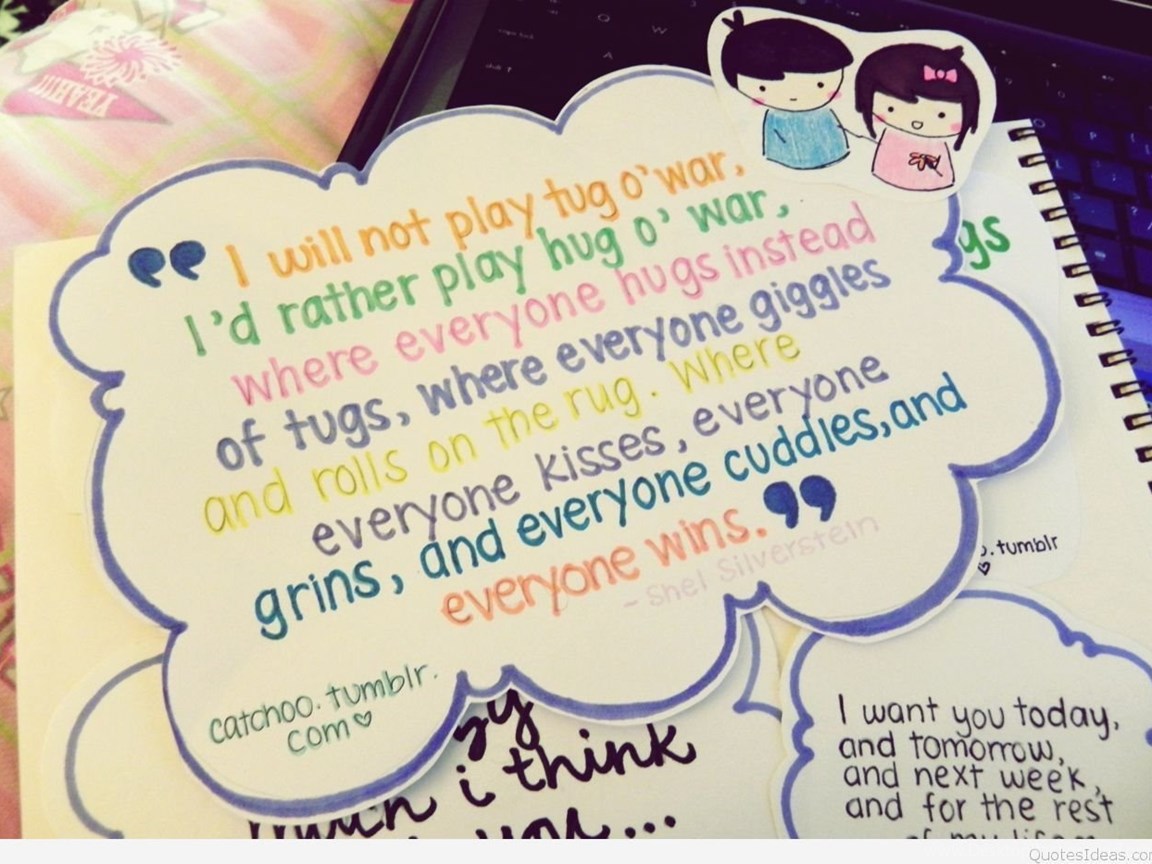 YEAH!!!
“ I will not play tug o'war,
I'd rather play hug o' war,
where everyone hugs instead
of tugs, where everyone giggles
and rolls on the rug. Where
everyone kisses, everyone
grins, and everyone cuddles, and
everyone wins. ”
- Shel Silverstein
catchoo.tumblr.
com♡
gs
o.tumblr
♡
zy
much i think
you...
I want you today,
and tomorrow,
and next week,
and for the rest
of my life
QuotesIdeas.com